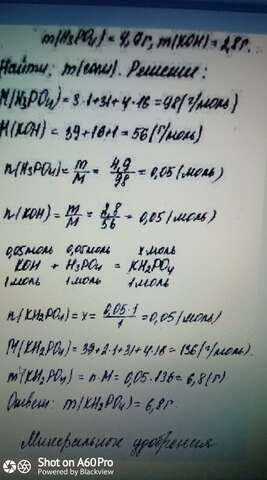 m(H₃PO₄) = 4,9г, m(KOH) = 2,8г.
Найти: m(соли). Решение:
M(H₃PO₄) = 3·1+31+4·16 = 98 (г/моль)
M(KOH) = 39+16+1 = 56 (г/моль)
n(H₃PO₄) = m/M = 4,9/98 = 0,05 (моль)
n(KOH) = m/M = 2,8/56 = 0,05 (моль)
0,05моль 0,05моль x моль
KOH + H₃PO₄ = KH₂PO₄
1моль 1моль 1моль
n(KH₂PO₄) = x = 0,05·1/1 = 0,05 (моль)
M(KH₂PO₄) = 39+2·1+31+4·16 = 136 (г/моль).
m(KH₂PO₄) = n·M = 0,05·136 = 6,8 (г)
Ответ: m(KH₂PO₄) = 6,8г.
Минеральное удобрения
Shot on A60Pro
Powered by Blackview